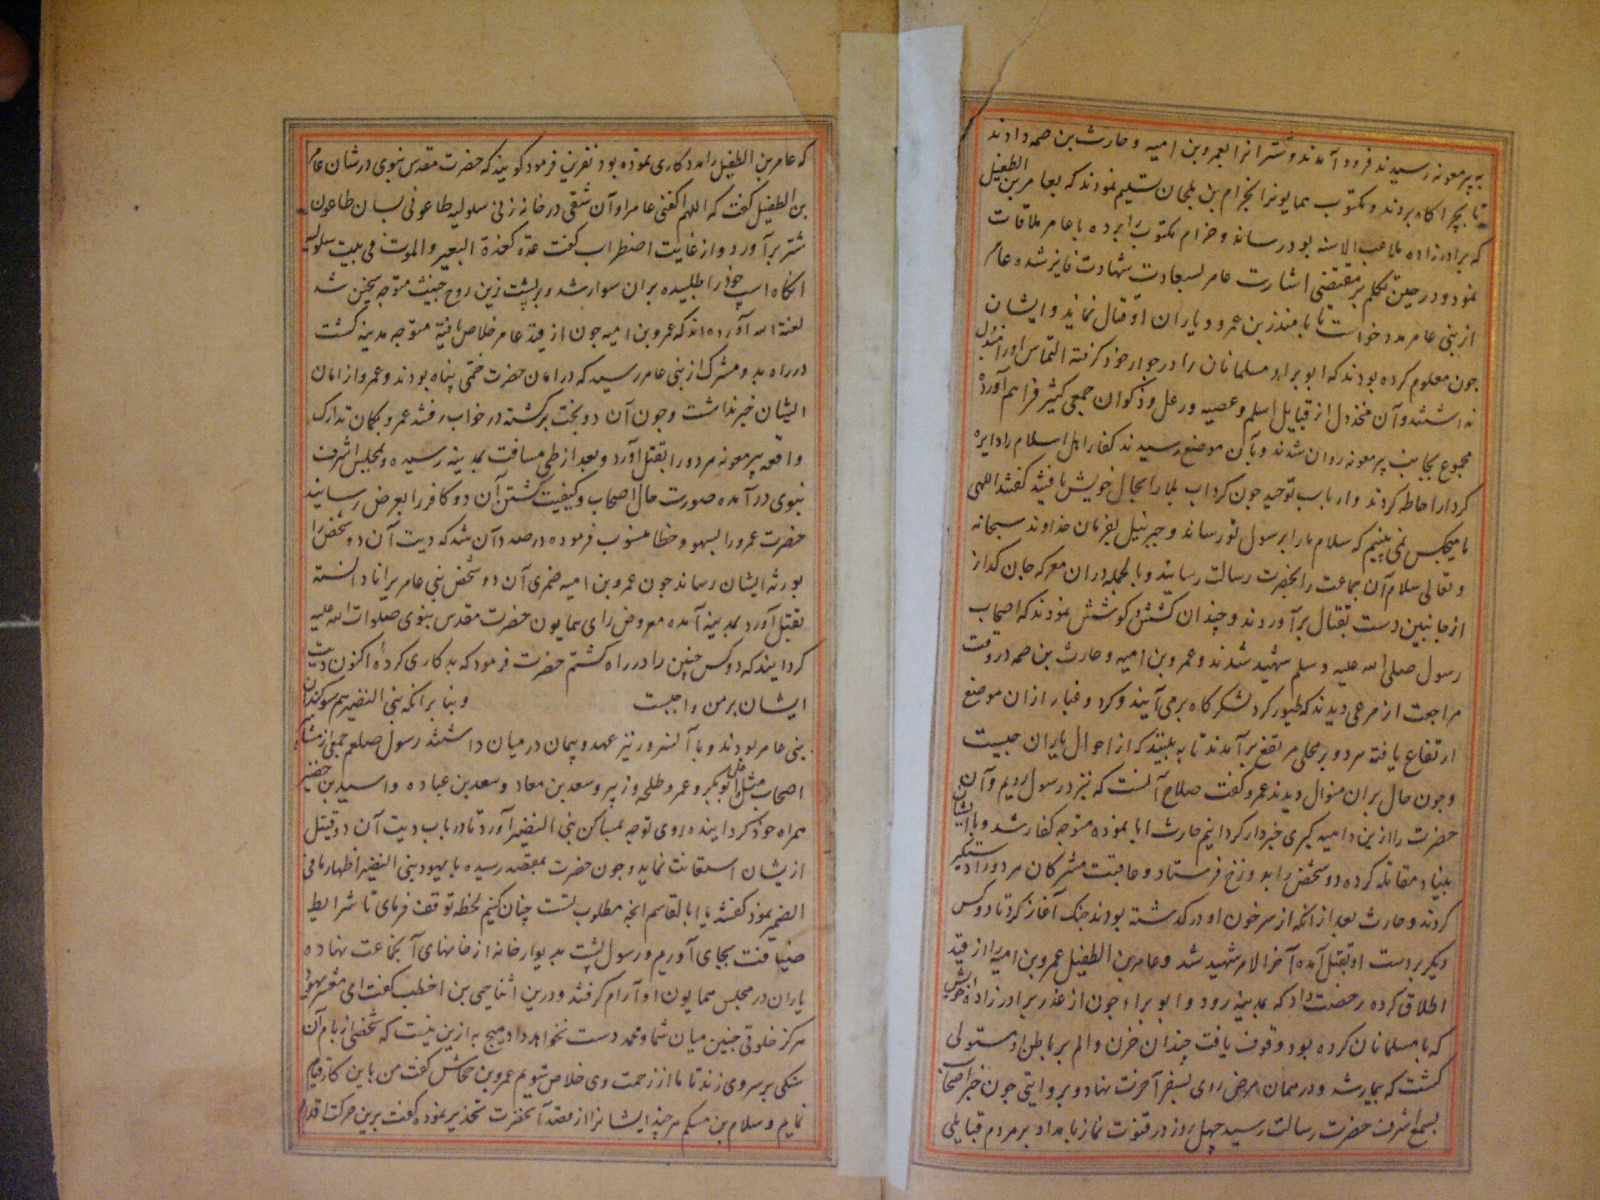 به بیر معونه رسیدند فرود آمدند و شتر انرا بعمرو بن امیه و حارث بن صمه دادند
تا بچراگاه بردند و مکتوب همایونرا بحرام بن ملحان تسلیم نمودند که بعامر بن الطفیل
که برادرزاده ملاعب الاسنه بود رساند و حرام مکتوب برده با عامر ملاقات
نمود و در حین تکلم بر مقتضی اشارت عامر بسعادت شهادت فایز شده عامر
از بنی عامر مدد خواست تا با منذر بن عمرو و یاران او قتال نماید و ایشان
چون معلوم کرده بودند که ابو براء مسلمانان را در جوار خود کرفته التماس او را مبذول
نداشتند و آن مخذول از قبایل اسلم و عصیه و رعل و ذکوان جمعی کثیر فراهم آورده
مجموع بجانب بیر معونه روان شدند و بآن موضع رسیدند کفار اهل اسلام را دایره
کردار احاطه کردند و ارباب توحید چون کرداب بلا را بحال خویش یافتند کفتند الهی
ما هیچکس نمی بینیم که سلام ما را برسول تو رساند و جبرئیل بفرمان خداوند سبحانه
و تعالی سلام آن جماعت را بحضرت رسالت رسانید و بالجمله در ان معرکه جان کداز
از جانبین دست بقتال برآوردند و چندان کشش و کوشش نمودند که اصحاب
رسول صلی الله علیه و سلم شهید شدند و عمرو بن امیه و حارث بن صمه در وقت
مراجعت از مرعی دیدند که طیور کرد لشکرکاه برمی آیند و کرد و غبار از ان موضع
ارتفاع یافته هر دو بر محلی مرتفع برآمدند تا به بینند که از احوال یاران چیست
و چون حال بران منوال دیدند عمرو کفت صلاح آنست که نزد رسول رویم و آن
حضرت را ازین داهیه کبری خبردار کردانیم حارث ابا نموده متوجه کفار شد و با ایشان
بنیاد مقاتله کرده دو شخص را بدوزخ فرستاد و عاقبت مشرکان هر دو را دستکیر
کردند و حارث بعد از انکه از سر خون او در کذشته بودند جنک آغاز کرد تا دو کس
دیکر بر دست او بقتل آمده آخر الامر شهید شد و عامر بن الطفیل عمرو بن امیه را از قید
اطلاق کرده رخصت داد که بمدینه رود و ابو براء چون از عذر برادرزاده خویش
که با مسلمانان کرده بود وقوف یافت چندان حزن و الم بر باطن او مستولی
کشت که بیمار شد و در همان مرض روی بسفر آخرت نهاد و بروایتی چون خبر اصحاب
بسمع اشرف حضرت رسالت رسید چهل روز در قنوت نماز بامداد بر مردم قبایلی
که عامر بن الطفیل را مددکاری نموده بود نفرین فرمود کویند که حضرت مقدس نبوی در شان عامر
بن الطفیل کفت که اللهم اکفنی عامرا و آن شقی در خانه زنی سلولیه طاعونی بسان طاعون
شتر برآورد و از غایت اضطراب کفت غدة کغدة البعیر و الموت فی بیت سلولیه
انکاه اسپ خود را طلبیده بران سوار شد و بر پشت زین روح خبیث متوجه سجین شد
لعنة الله آورده اند که عمرو بن امیه چون از قید عامر خلاص یافته متوجه مدینه کشت
در راه بدو مشرک از بنی عامر رسید که در امان حضرت ختمی پناه بودند و عمرو از امان
ایشان خبر نداشت و چون آن دو بخت برکشته در خواب رفتند عمرو بکمان تدارک
واقعه بیر معونه هر دو را بقتل آورد و بعد از طی مسافت بمدینه رسیده و بمجلس اشرف
نبوی درآمده صورت حال اصحاب و کیفیت کشتن آن دو کافر را بعرض رسانید
حضرت عمرو را بسهو و خطا منسوب فرموده در صدد آن شد که دیت آن دو شخص را
بورثه ایشان رساند چون عمرو بن امیه ضمری آن دو شخص بنی عامر برا نادانسته
بقتل آورد بمدینه آمده معروض رای همایون حضرت مقدس نبوی صلوات الله علیه
کردانید که دو کس چنین را در راه کشتم حضرت فرمود که بد کاری کرده اکنون دیت
ایشان بر من واجبست و بنا بر انکه بنی النضیر هم سوکندان
بنی عامر بودند و با آنسرور نیز عهد و پیمان در میان داشتند رسول صلعم جمعی از مشاهیر
اصحاب مثل علی و ابوبکر و عمر و طلحه و زبیر و سعد بن معاد و سعد بن عباده و اسید بن حضیر
همراه خود کردانیده روی توجه بمساکن بنی النضیر آورد تا در باب دیت آن دو قتیل
از یشان استعانت نماید و چون حضرت بمقصد رسیده با یهود بنی النضیر اظهار ما فی
الضمیر نمود کفتند یا ابا القاسم انچه مطلوب تست چنان کنیم لحظه توقف فرمای تا شرایط
ضیافت بجای آوریم و رسول پشت بدیوار خانه از خانهای آنجماعت نهاده
یاران در مجلس همایون او آرام کرفتند و درین اثنا حیی بن اخطب کفت ای معشر یهود
هرکز خلوتی چنین میان شما و محمد دست نخواهد داد هیچ به ازین نیست که شخصی از بام آن
سنکی بر سر وی زند تا ما از زحمت وی خلاص شویم عمرو بن جحاش کفت من باین کار قیام
نمایم و سلام بن مشکم هر چند ایشانرا از قصد آنحضرت تحذیر نموده کفت برین حرکت اقدام